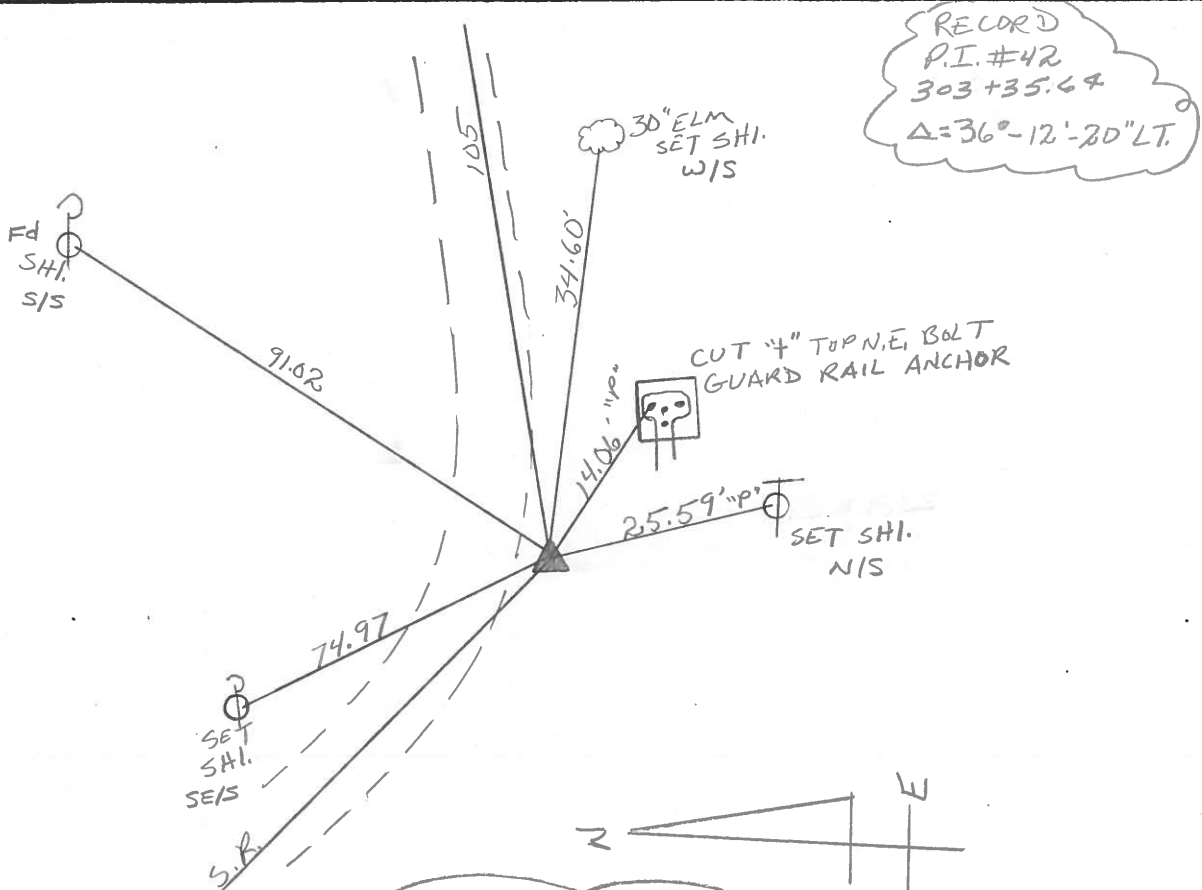 RECORD
P.I. #42
303+35.64
Δ=36°-12'-20"LT.
105
30" ELM
SET SHI.
W/S
34.60'
Fd
SHI.
S/S
91.02
CUT "+" TOP N.E. BOLT
GUARD RAIL ANCHOR
14.06-"P"
25.59' "P"
SET SHI.
N/S
74.97
SET
SHI.
SE/S
S.R.
N
E